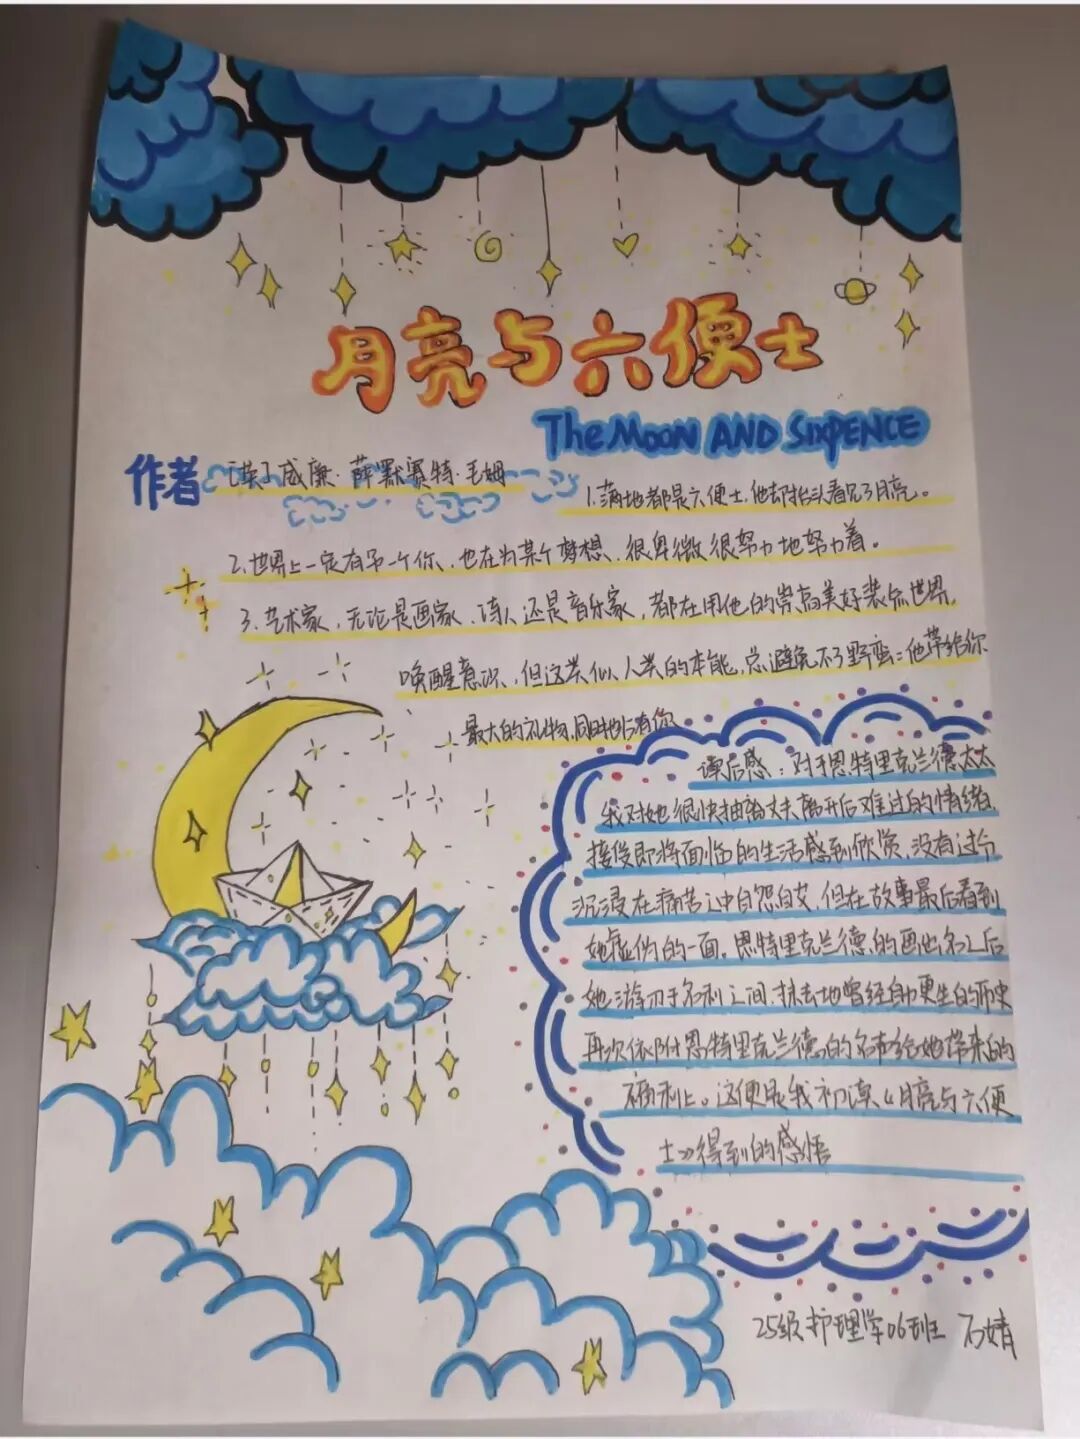 月亮与六便士
The Moon AND SIXPENCE
作者 [英]威廉·薛默赛特·毛姆
1.满地都是六便士,他却抬头看见了月亮。
2.世界上一定有另一个你,也在为某个梦想,很卑微很努力地努力着。
3.艺术家,无论是画家、诗人还是音乐家,都在用他的崇高美好装饰世界,
唤醒意识,但这类似人类的本能,总避免不了野蛮:他带给你
最大的礼物,同时也占有你
读后感:对于思特里克兰德太太
我对她很快抽离丈夫离开后难过的情绪,
接受即将面临的生活感到欣赏,没有过分
沉浸在痛苦之中自怨自艾,但在故事最后看到
她虚伪的一面。思特里克兰德的画出名之后
她游刃于名利之间,抹去她曾经自力更生的历史
再次依附思特里克兰德的名声给她带来的
福利上。这便是我初读《月亮与六便
士》得到的感悟
25级护理学06班 石婧